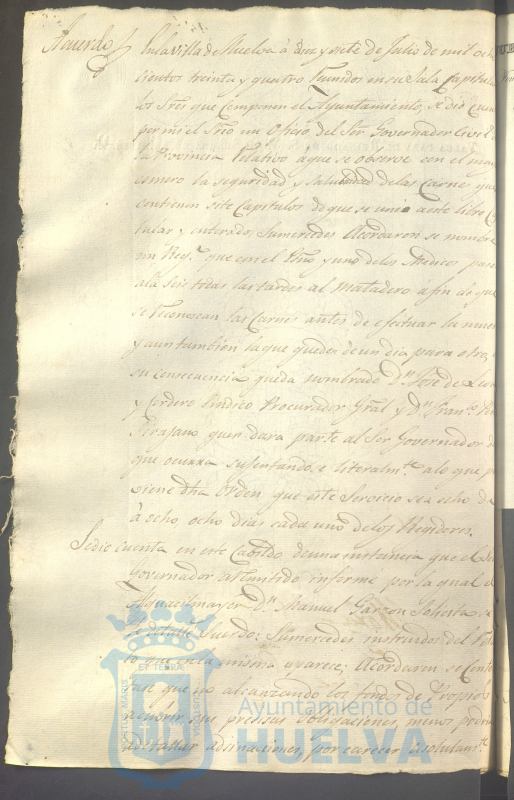 Acuerdo En la villa de Huelva à diez y siete de Julio de mil ocho
cientos treinta y quatro reunidos en su Sala Capitula
los Sres que componen el Ayuntamiento, se dió cuen
por mi el Srio un Oficio del Sor Governador Civil d
la Provincia relativo a que se observe con el ma
esmero la seguridad y salubridad de las Carne que
contienen siete Capitulos de que se unio a este libro C
tular y enterados, Sumercedes Acordaron se nombre
un Res.r que con el Srio y uno de los Medicos pase
a la seis todas las tardes al Matadero a fin de que
se reconoscan las Carnes antes de efetuar la muer
y aun tambien la que queda de un dia para otro,
su consecuencia queda nombrado Dn Jose de
y Cordero Sindico Procurador Gral y Dn Fran.co
quen dara parte al Sor Governador d
que ocurra sugentandose literalm.te a lo que p
viene dha Orden que este Servicio sea echo de
à ocho ocho dias cada uno de los Regidores.
Se dio cuenta en este Cabildo de una instancia que el Sr
Governador informe por la qual el
Alguacil mayor Dn Manuel Garzon Solicita se
Sueldo: Sumercedes instruidos del
to que en la misma aparece: Acordaron se Conte
que no alcanzando los fondos de Propios
à cubrir sus presisas Obligaciones, menos podra
por carecer absolutam.te
ET TERRÆ
PORTUS MARIS
CUSTODIA
Ayuntamiento de
HUELVA